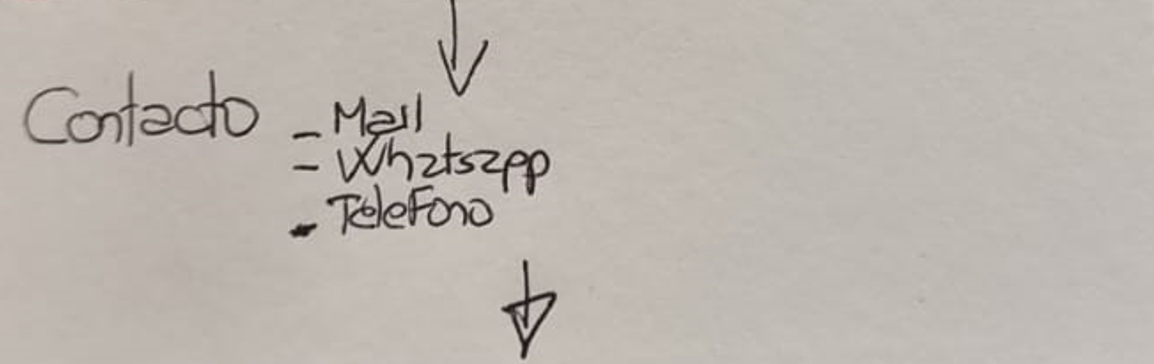 Contacto - Mail
- Whatsapp
- Telefono